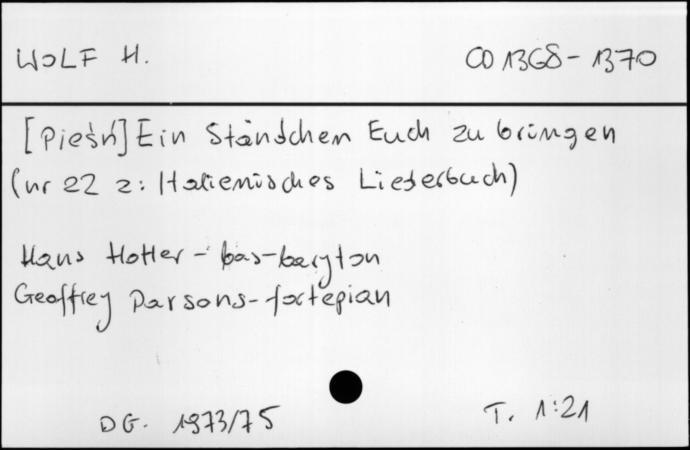 WOLF H. CD 1368-1370
[Pieśń] Ein Ständchen Euch zu bringen
(nr 22 z: Italienisches Liederbuch)
Hans Hotter - bas-baryton
Geoffrey Parsons - fortepian
DG. 1973/75 T. 1:21